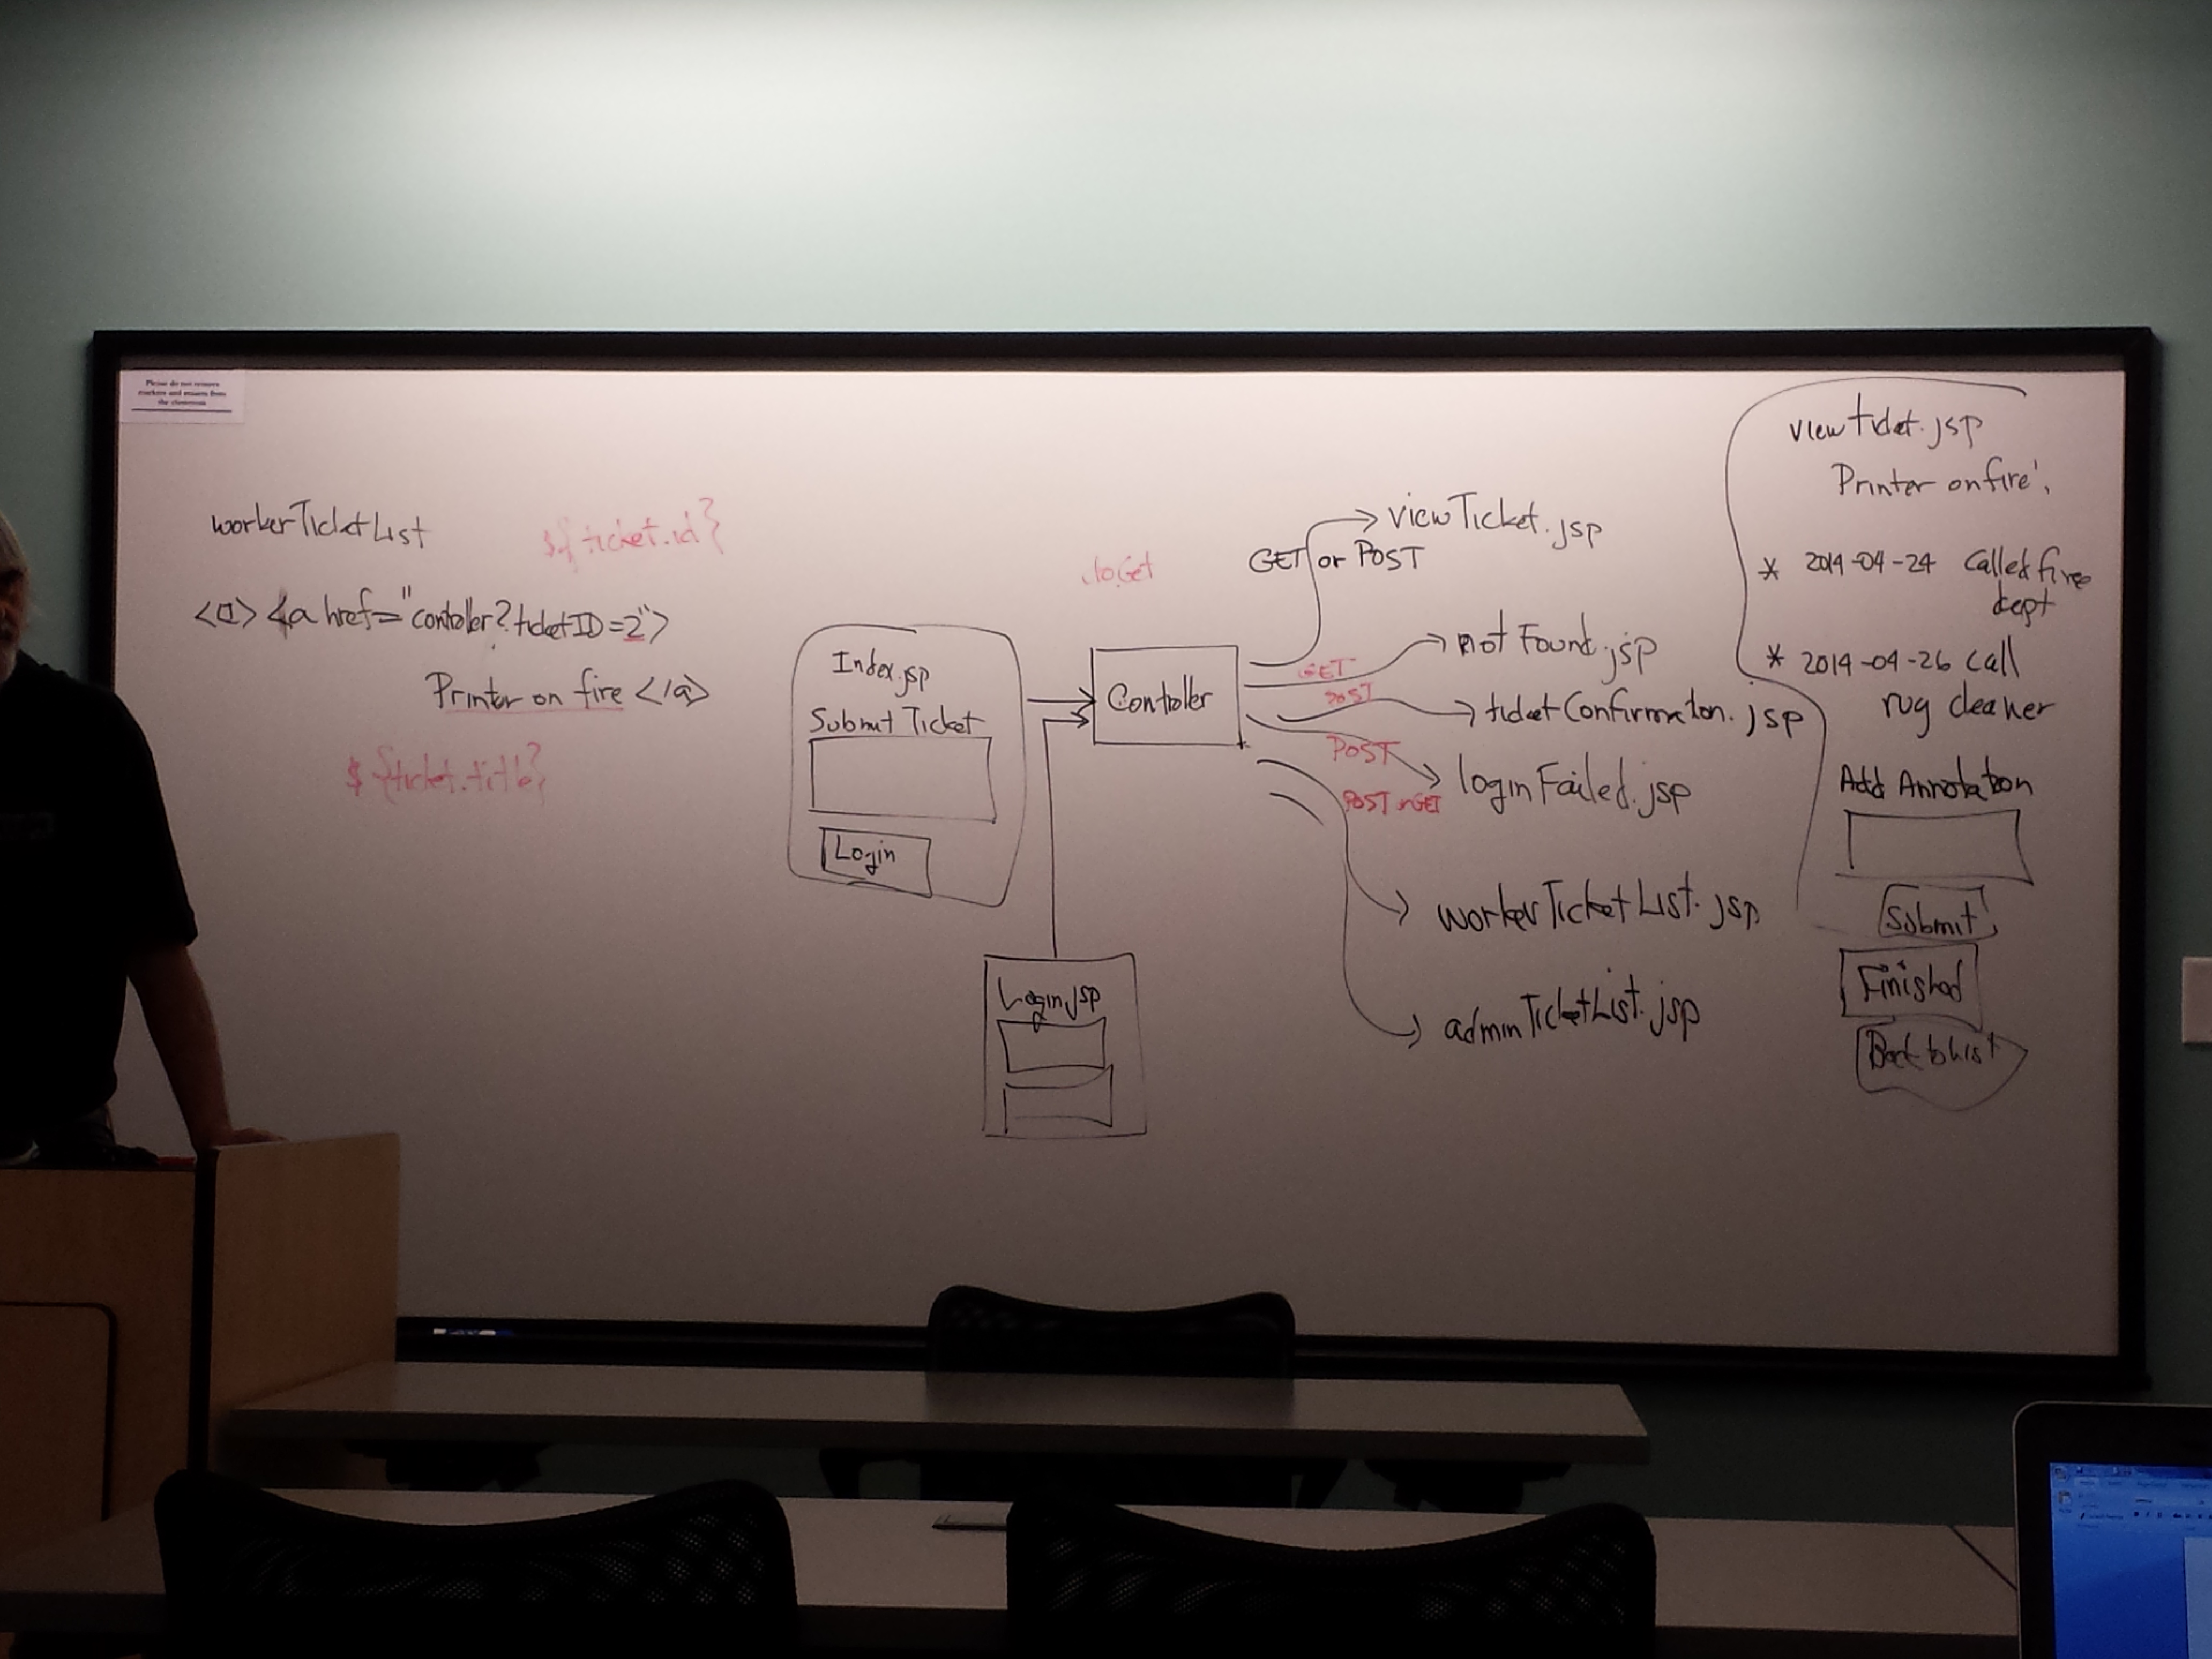 Please do not remove
markers and erasers from
the classroom
workerTicketList
${ticket.id}
<a href="contoller?ticketID=2">
Printer on fire </a>
${ticket.title}
Index.jsp
Submit Ticket
Login
Login.jsp
Contoller
GET or POST
viewTicket.jsp
GET
notFound.jsp
POST
ticketConfirmaton.jsp
POST
loginFailed.jsp
POST or GET
workerTicketList.jsp
adminTicketList.jsp
viewticket.jsp
Printer on fire!
* 2014-04-24 Called fire
dept
* 2014-04-26 Call
rug cleaner
Add Annotation
Submit
Finished
Back to List